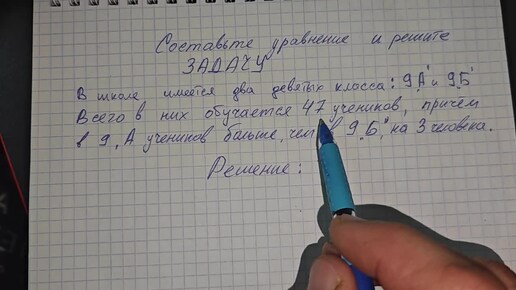 Составьте уравнение и решите
ЗАДАЧУ
В школе имеется два девятых класса: 9„А" и 9„Б"
Всего в них обучается 47 учеников, причём
в 9„А учеников больше, чем в 9„Б" на 3 человека.
Решение: